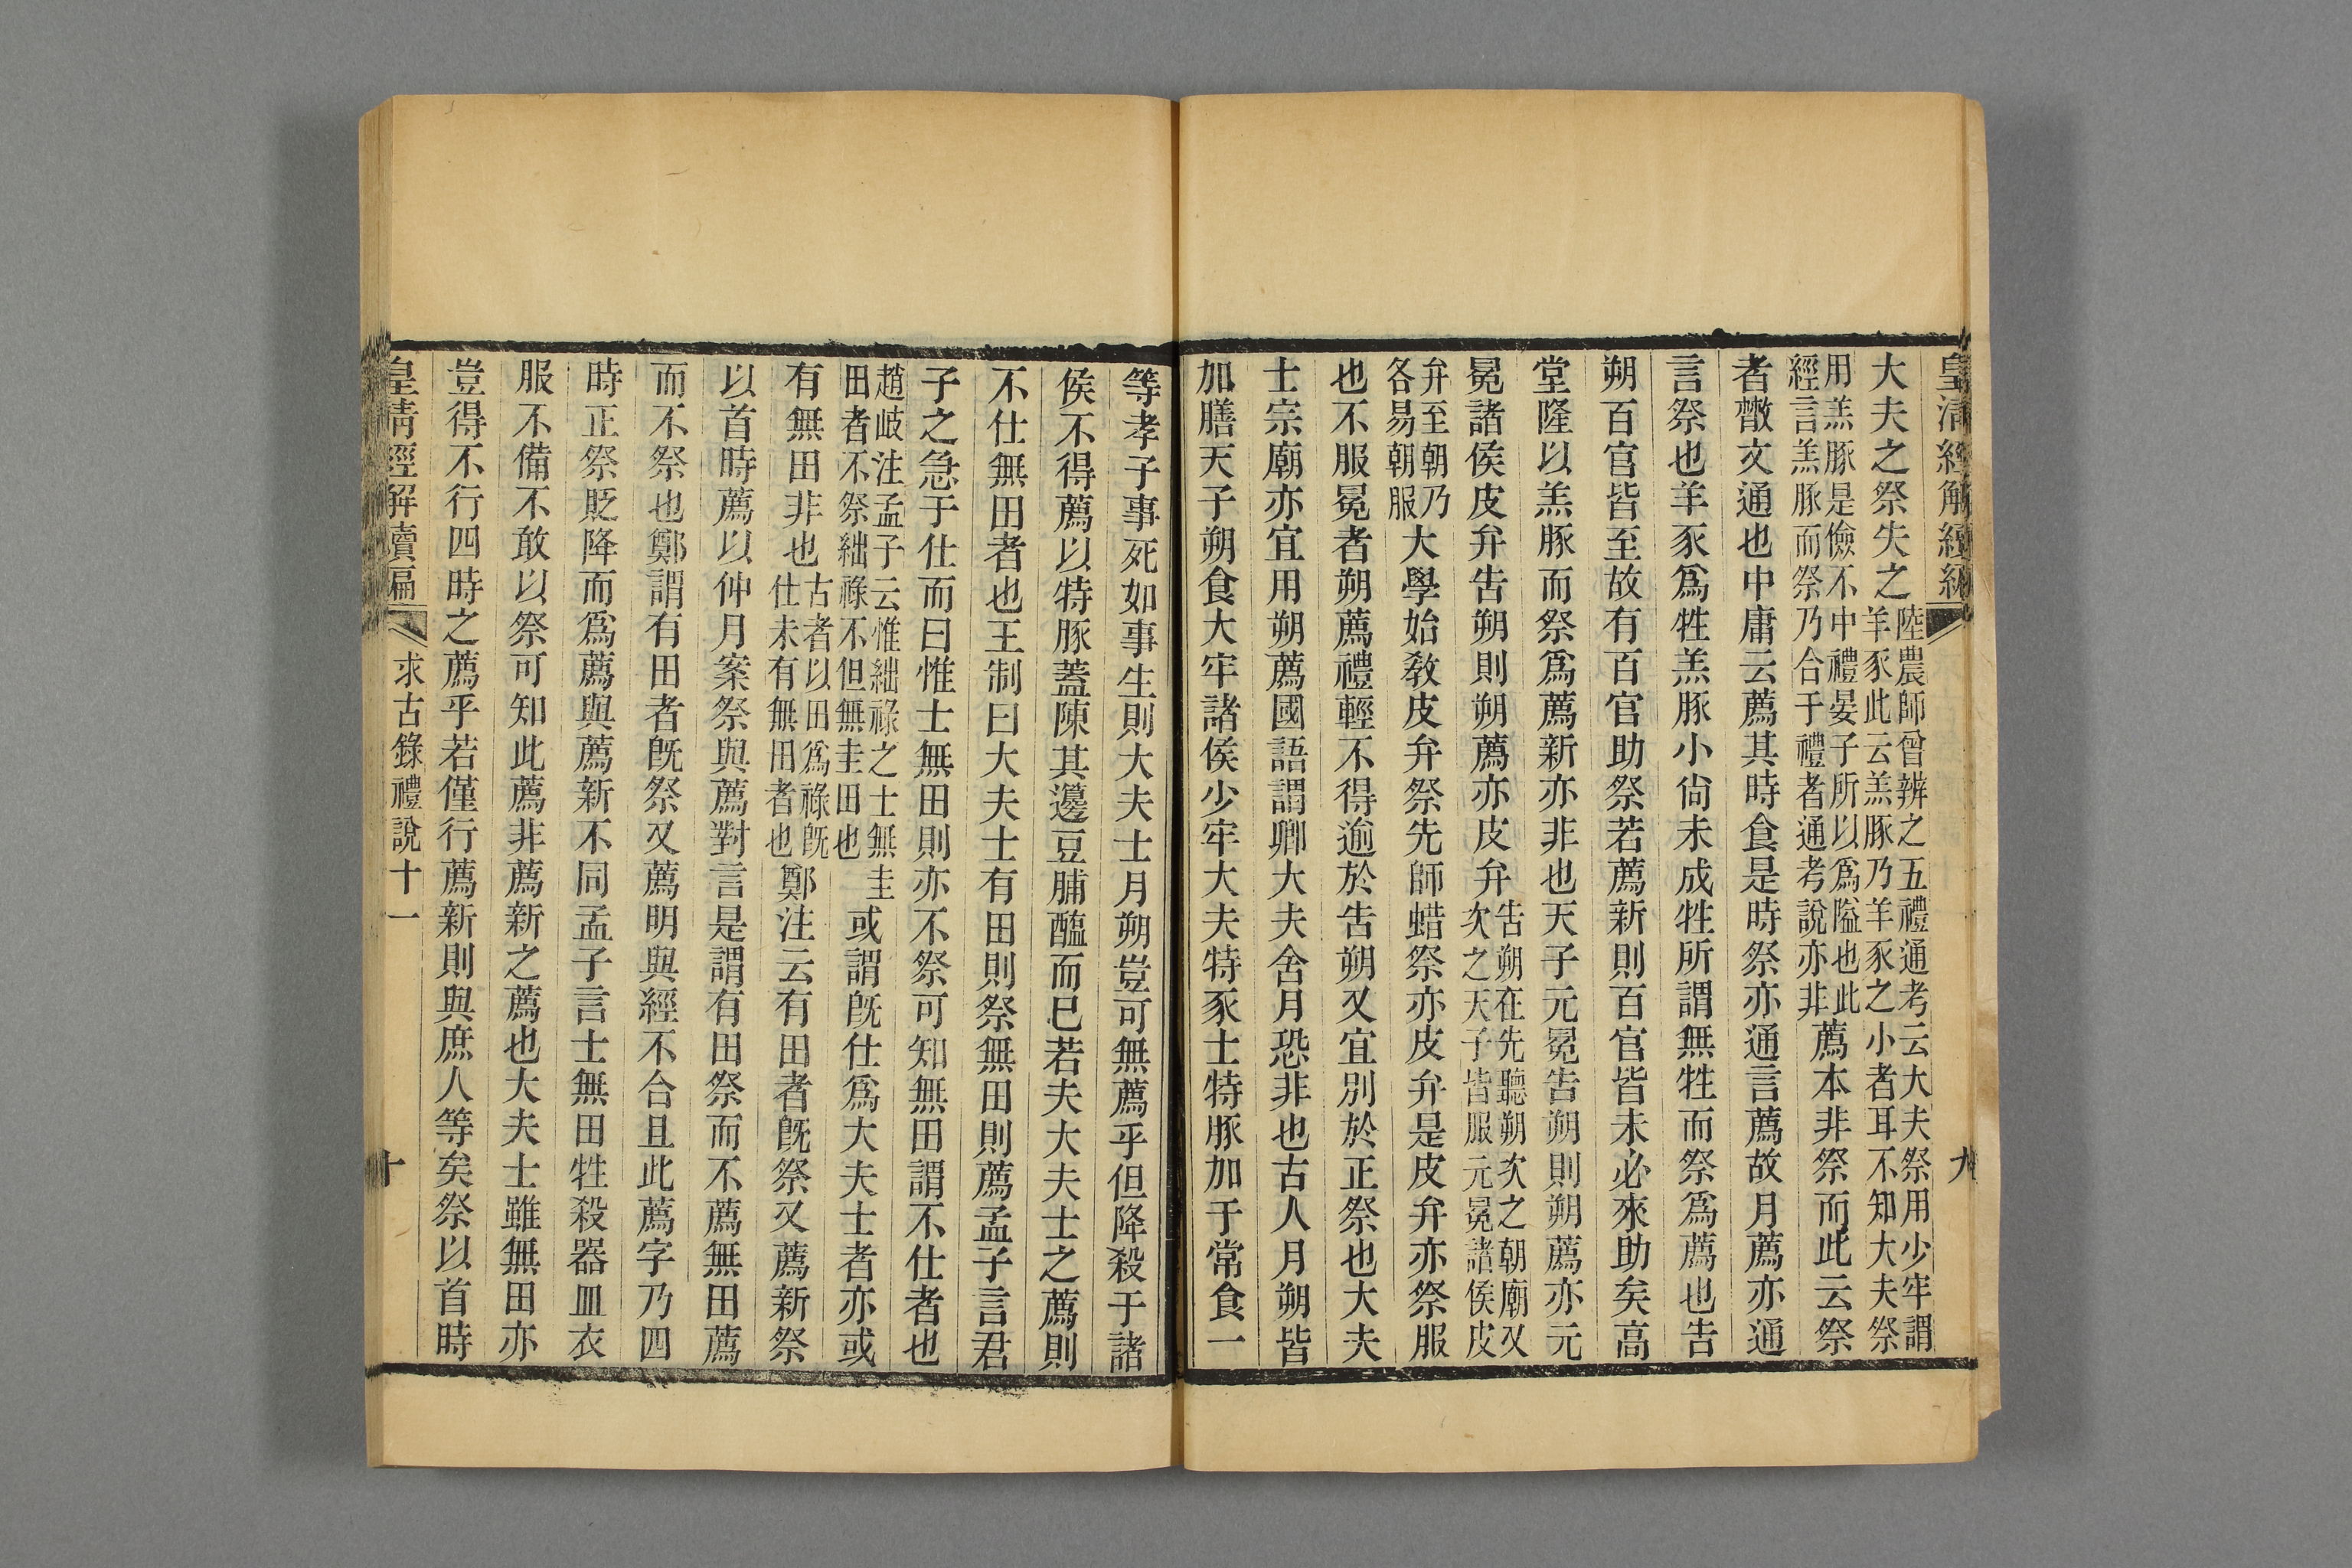 皇清經解續編
九
大夫之祭失之陸農師曾辨之五禮通考云大夫祭用少牢謂羊豕此云羔豚乃羊豕之小者耳不知大夫祭
用羔豚是儉不中禮晏子所以爲隘也此經言羔豚而祭乃合于禮者通考說亦非薦本非祭而此云祭
者散文通也中庸云薦其時食是時祭亦通言薦故月薦亦通
言祭也羊豕爲牲羔豚小尙未成牲所謂無牲而祭爲薦也吿
朔百官皆至故有百官助祭若薦新則百官皆未必來助矣高
堂隆以羔豚而祭爲薦新亦非也天子元冕吿朔則朔薦亦元
冕諸侯皮弁吿朔則朔薦亦皮弁吿朔在先聽朔次之朝廟又次之天子皆服元冕諸侯皮
弁至朝乃各易朝服大學始敎皮弁祭先師蜡祭亦皮弁是皮弁亦祭服
也不服冕者朔薦禮輕不得逾於吿朔又宜別於正祭也大夫
士宗廟亦宜用朔薦國語謂卿大夫舍月恐非也古人月朔皆
加膳天子朔食大牢諸侯少牢大夫特豕士特豚加于常食一
等孝子事死如事生則大夫士月朔豈可無薦乎但降殺于諸
侯不得薦以特豚蓋陳其籩豆脯醢而已若夫大夫士之薦則
不仕無田者也王制曰大夫士有田則祭無田則薦孟子言君
子之急于仕而曰惟士無田則亦不祭可知無田謂不仕者也
趙岐注孟子云惟絀祿之士無圭田者不祭絀祿不但無圭田也或謂旣仕爲大夫士者亦或
有無田非也古者以田爲祿旣仕未有無田者也鄭注云有田者旣祭又薦新祭
以首時薦以仲月案祭與薦對言是謂有田祭而不薦無田薦
而不祭也鄭謂有田者旣祭又薦明與經不合且此薦字乃四
時正祭貶降而爲薦與薦新不同孟子言士無田牲殺器皿衣
服不備不敢以祭可知此薦非薦新之薦也大夫士雖無田亦
豈得不行四時之薦乎若僅行薦新則與庶人等矣祭以首時
皇清經解續編
求古錄禮說十一
十